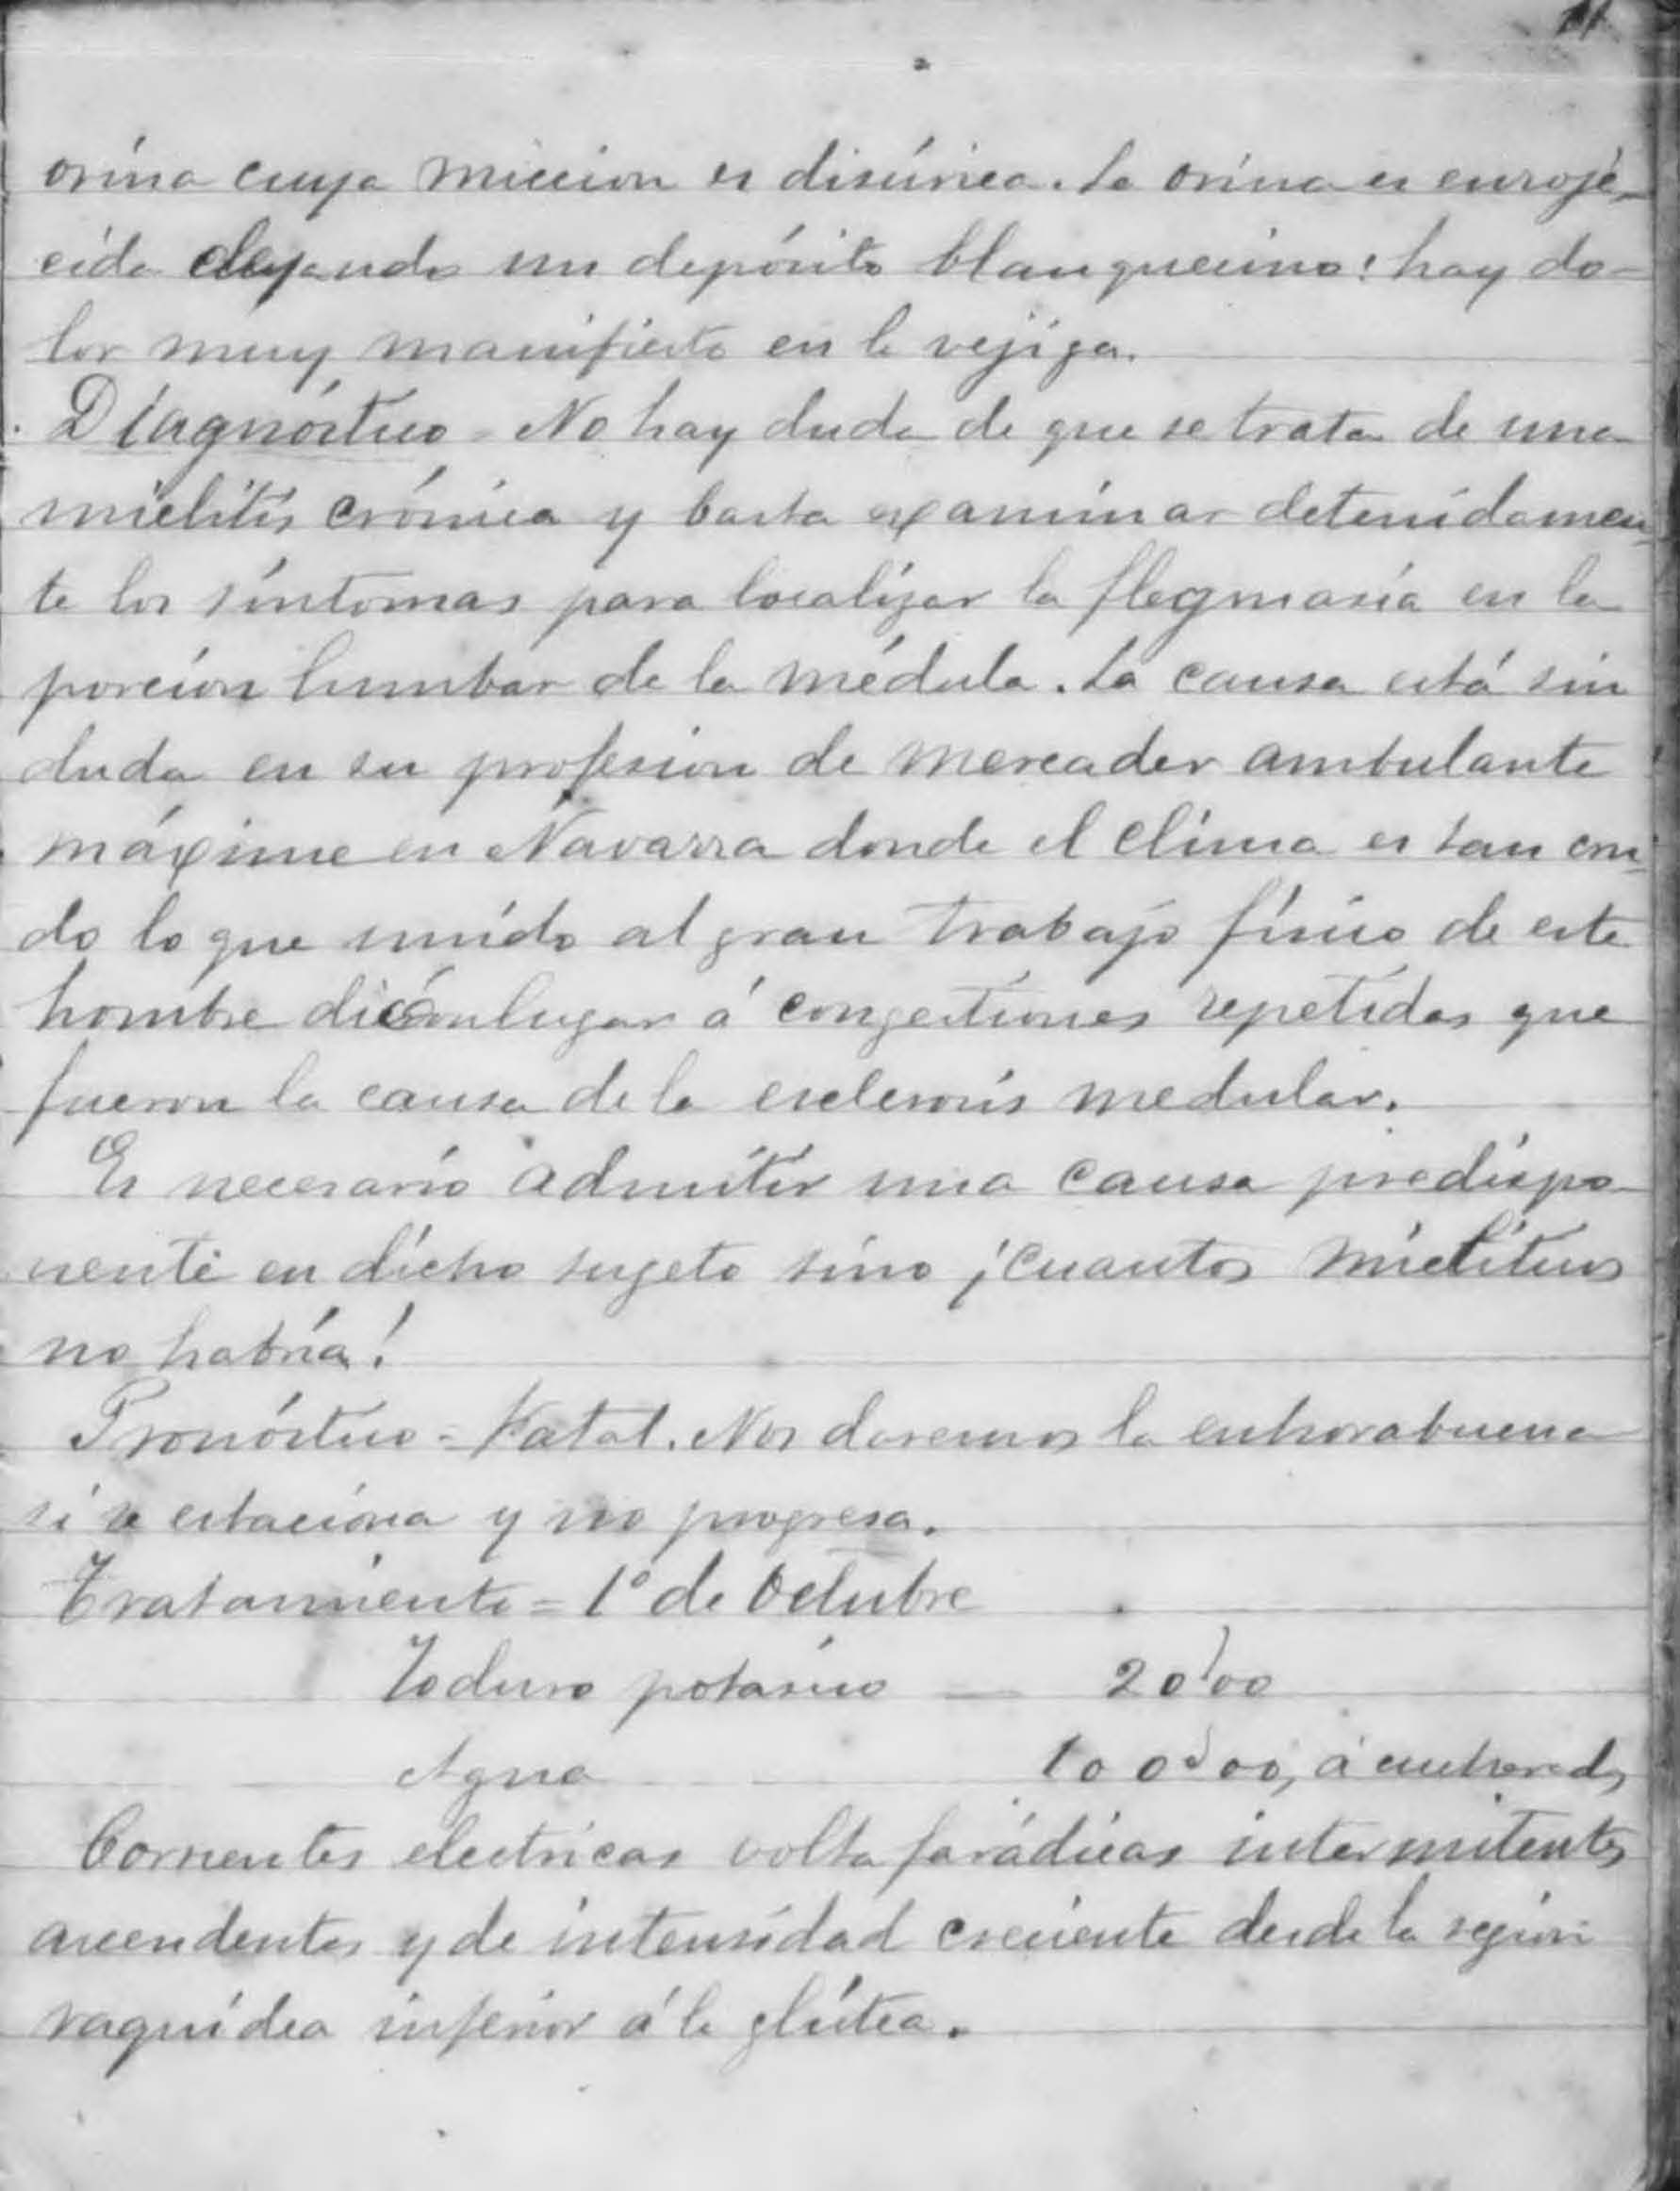 11
orina cuya miccion es disúrica. La orina es enroje-
cida dejando un depósito blanquecino: hay do-
lor muy manifiesto en la vejiga.
Diagnóstico - No hay duda de que se trata de una
mielitis crónica y basta examinar detenidamen-
te los síntomas para localizar la flegmasía en la
porción lumbar de la médula. La causa está sin
duda en su profesion de mercader ambulante
máxime en Navarra donde el clima es tan cru-
do lo que unido al gran trabajo físico de este
hombre dieron lugar á congestiones repetidas que
fueron la causa de la esclerosis medular.
Es necesario admitir una causa predispo-
nente en dicho sugeto sino ¡cuantos mielíticos
no habría!
Pronóstico - Fatal. Nos daremos la enhorabuena
si se estaciona y no progresa.
Tratamiento = 1º de Octubre
Ioduro potásico — 20'00
Agua 100'00, á cucharads
Corrientes electricas volta farádicas intermitentes
ascendentes y de intensidad creciente desde la región
raquídea inferior á la glútea.